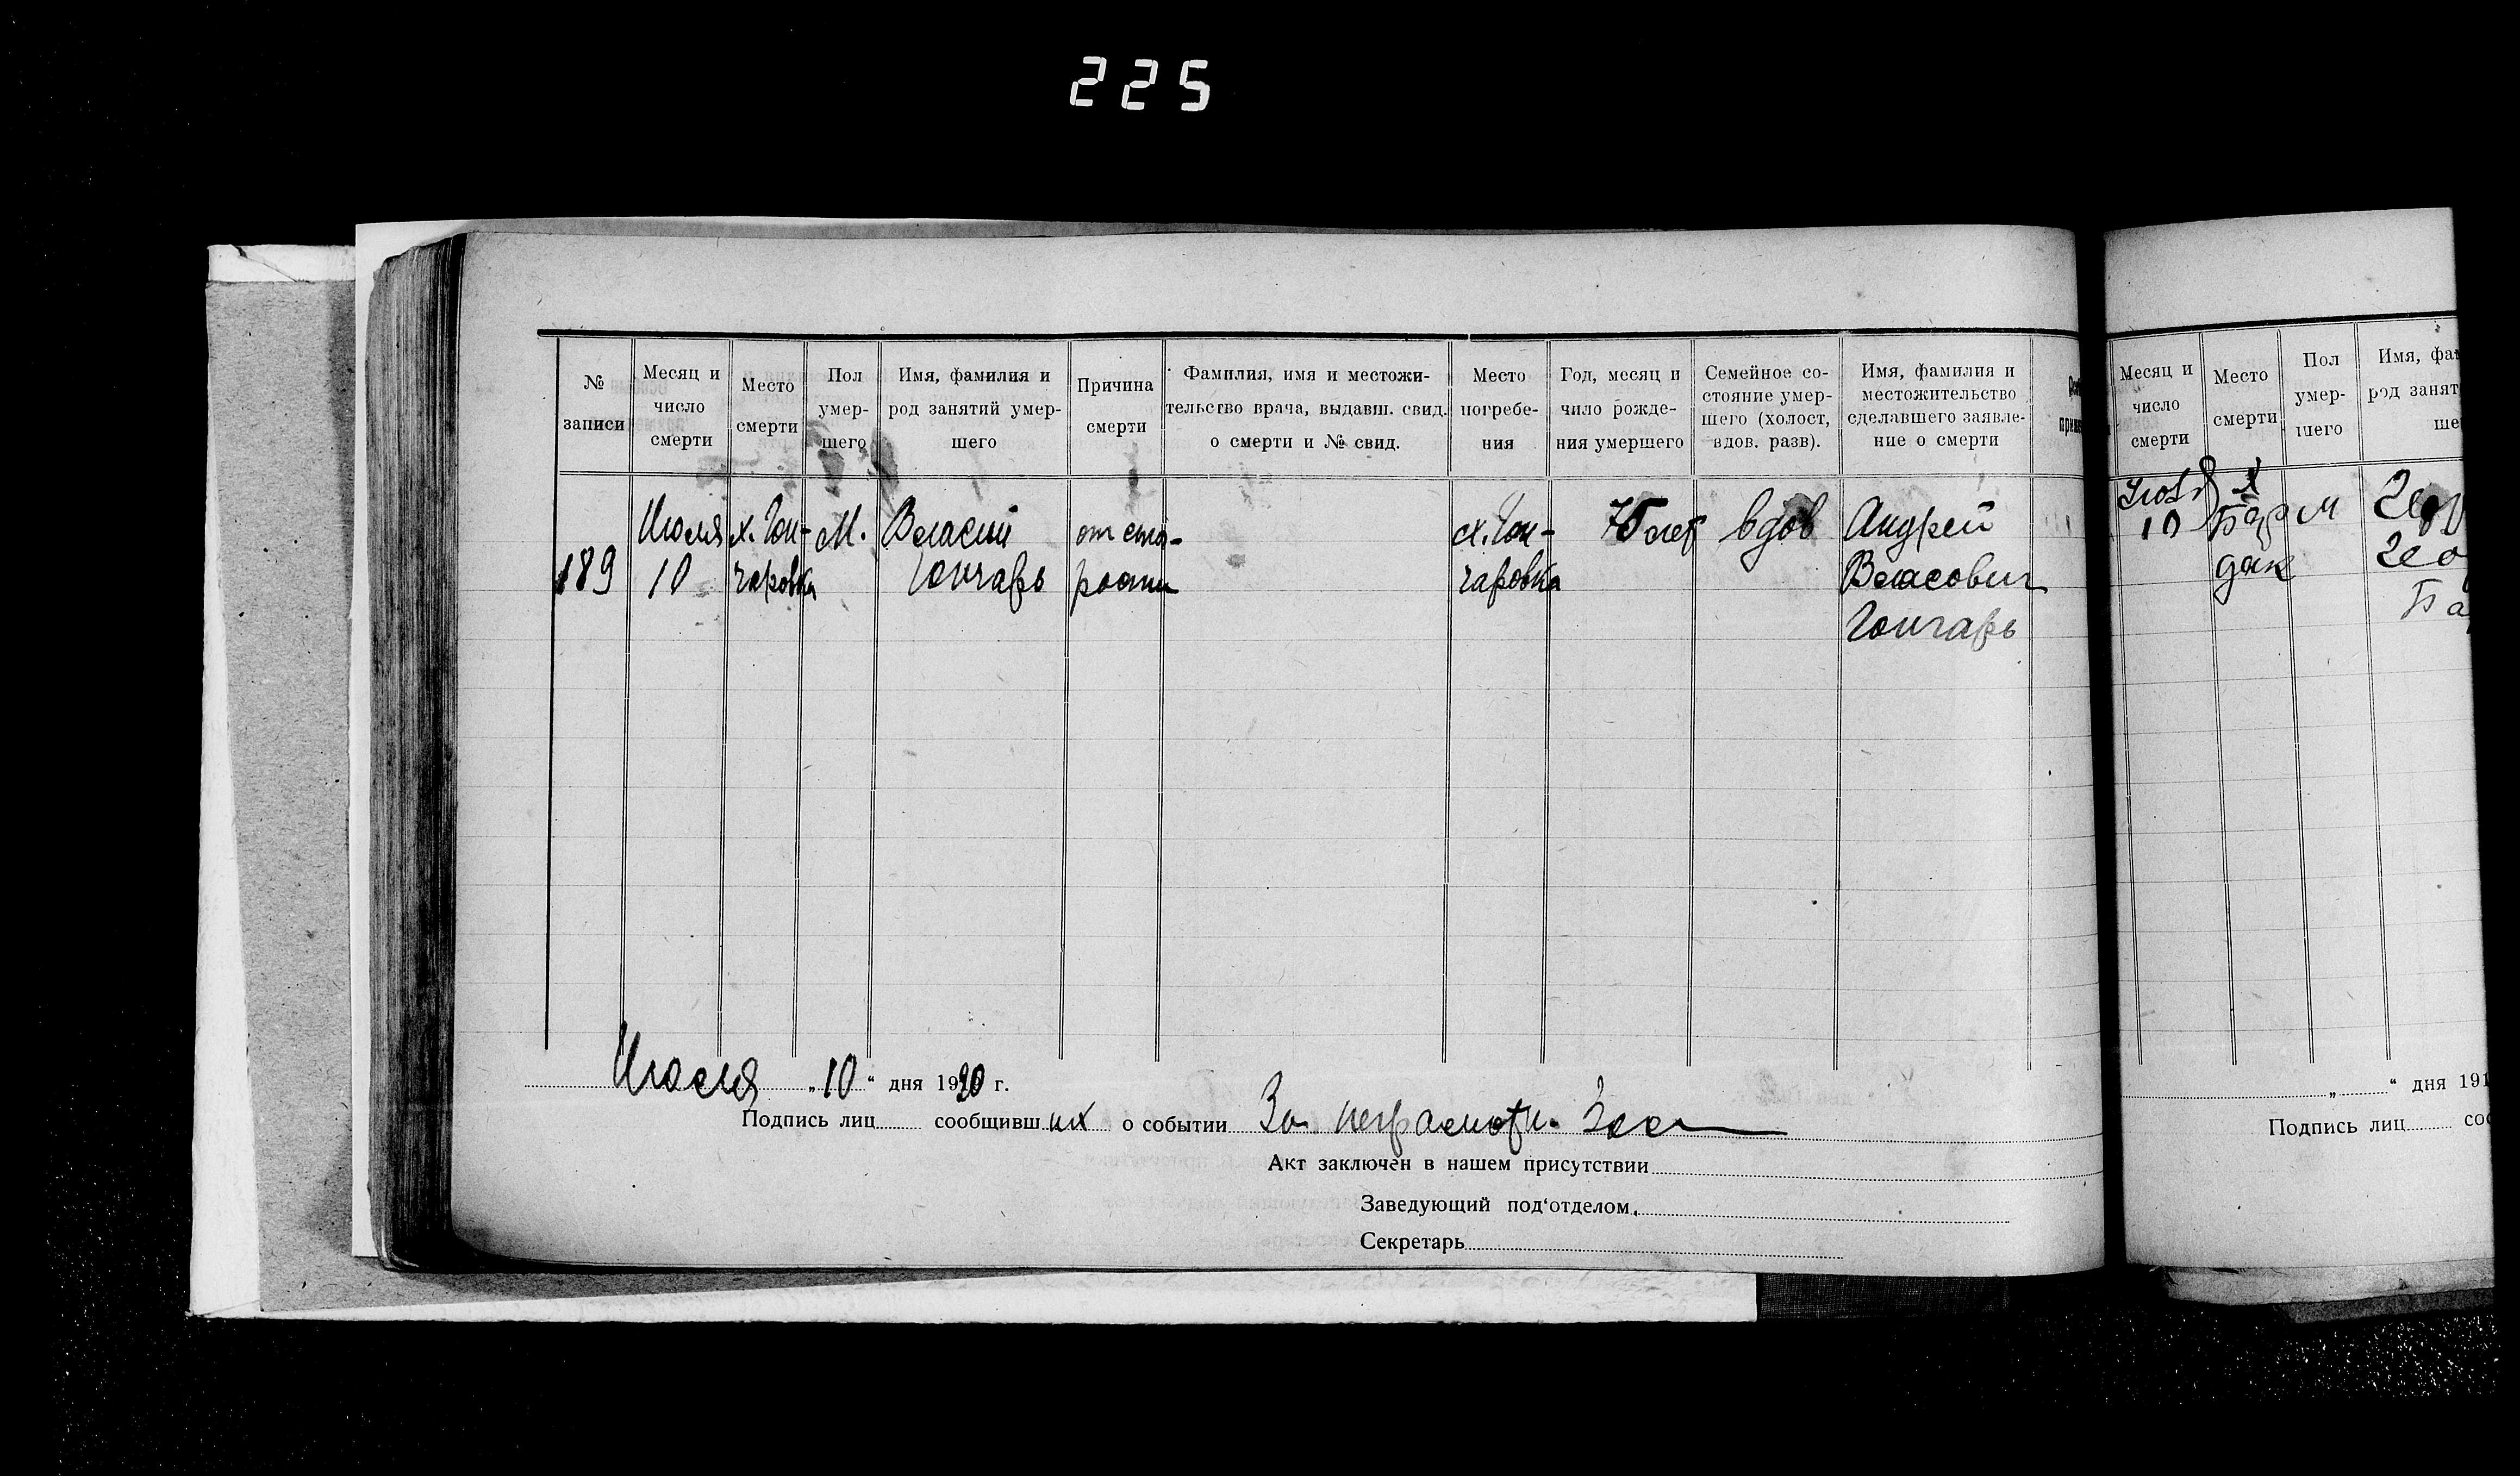 225
№ записи
Месяц и число смерти
Место смерти
Пол умер-шего
Имя, фамилия и род занятий умер-шего
Причина смерти
Фамилия, имя и местожи-тельство врача, выдавш. свид. о смерти и № свид.
Место погребе-ния
Год, месяц и чило рожде-ния умершего
Семейное со-стояние умер-шего (холост, вдов. разв).
Имя, фамилия и местожительство сделавшего заявле-ние о смерти
189
Июля 10
х. Гон-чаровка
М.
Власий Гончарь
от ста-рости
х. Гон-чаровка
75 лет
вдов
Андрей Власович Гончарь
Июля „10“ дня 1920 г.
Подпись лиц сообщивших о событии За неграмотн.
Акт заключен в нашем присутствии
Заведующий под'отделом.
Секретарь
Месяц и число смерти
Место смерти
Пол умер-шего
Имя,
род
10
м
„ “ дня 191
Подпись лиц